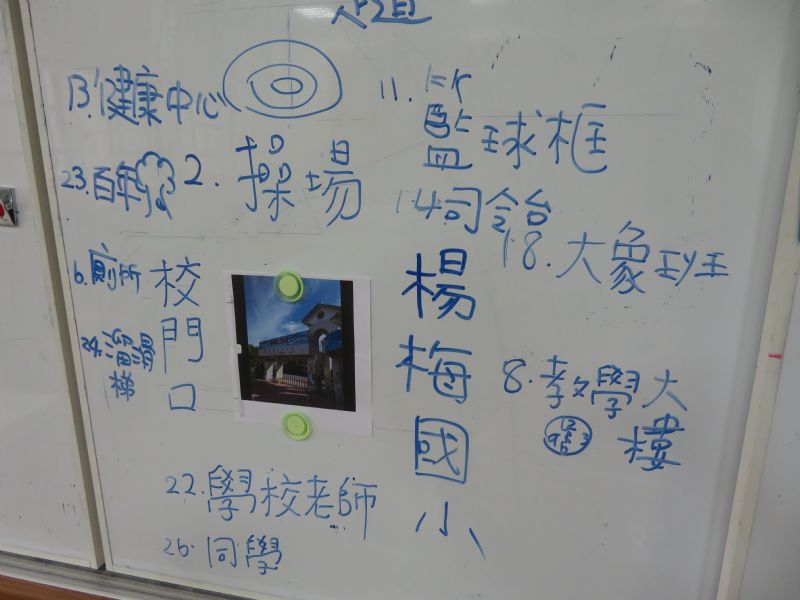 13.健康中心
11.
籃球框
23.百年
2.操場
14司令台
18.大象班
6.廁所
校門口
楊梅國小
24.溜滑梯
8.教學大樓
22.學校老師
26.同學